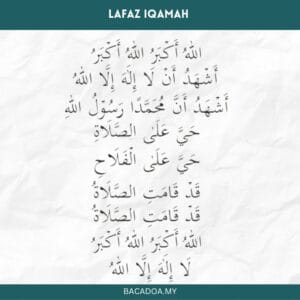 LAFAZ IQAMAH
اللهُ أَكْبَرُ اللهُ أَكْبَرُ
أَشْهَدُ أَنْ لَا إِلَهَ إِلَّا اللهُ
أَشْهَدُ أَنَّ مُحَمَّدًا رَسُوْلُ اللهِ
حَيَّ عَلَى الصَّلَاةِ
حَيَّ عَلَى الْفَلَاحِ
قَدْ قَامَتِ الصَّلَاةُ
قَدْ قَامَتِ الصَّلَاةُ
اللهُ أَكْبَرُ اللهُ أَكْبَرُ
لَا إِلَهَ إِلَّا اللهُ
BACADOA.MY